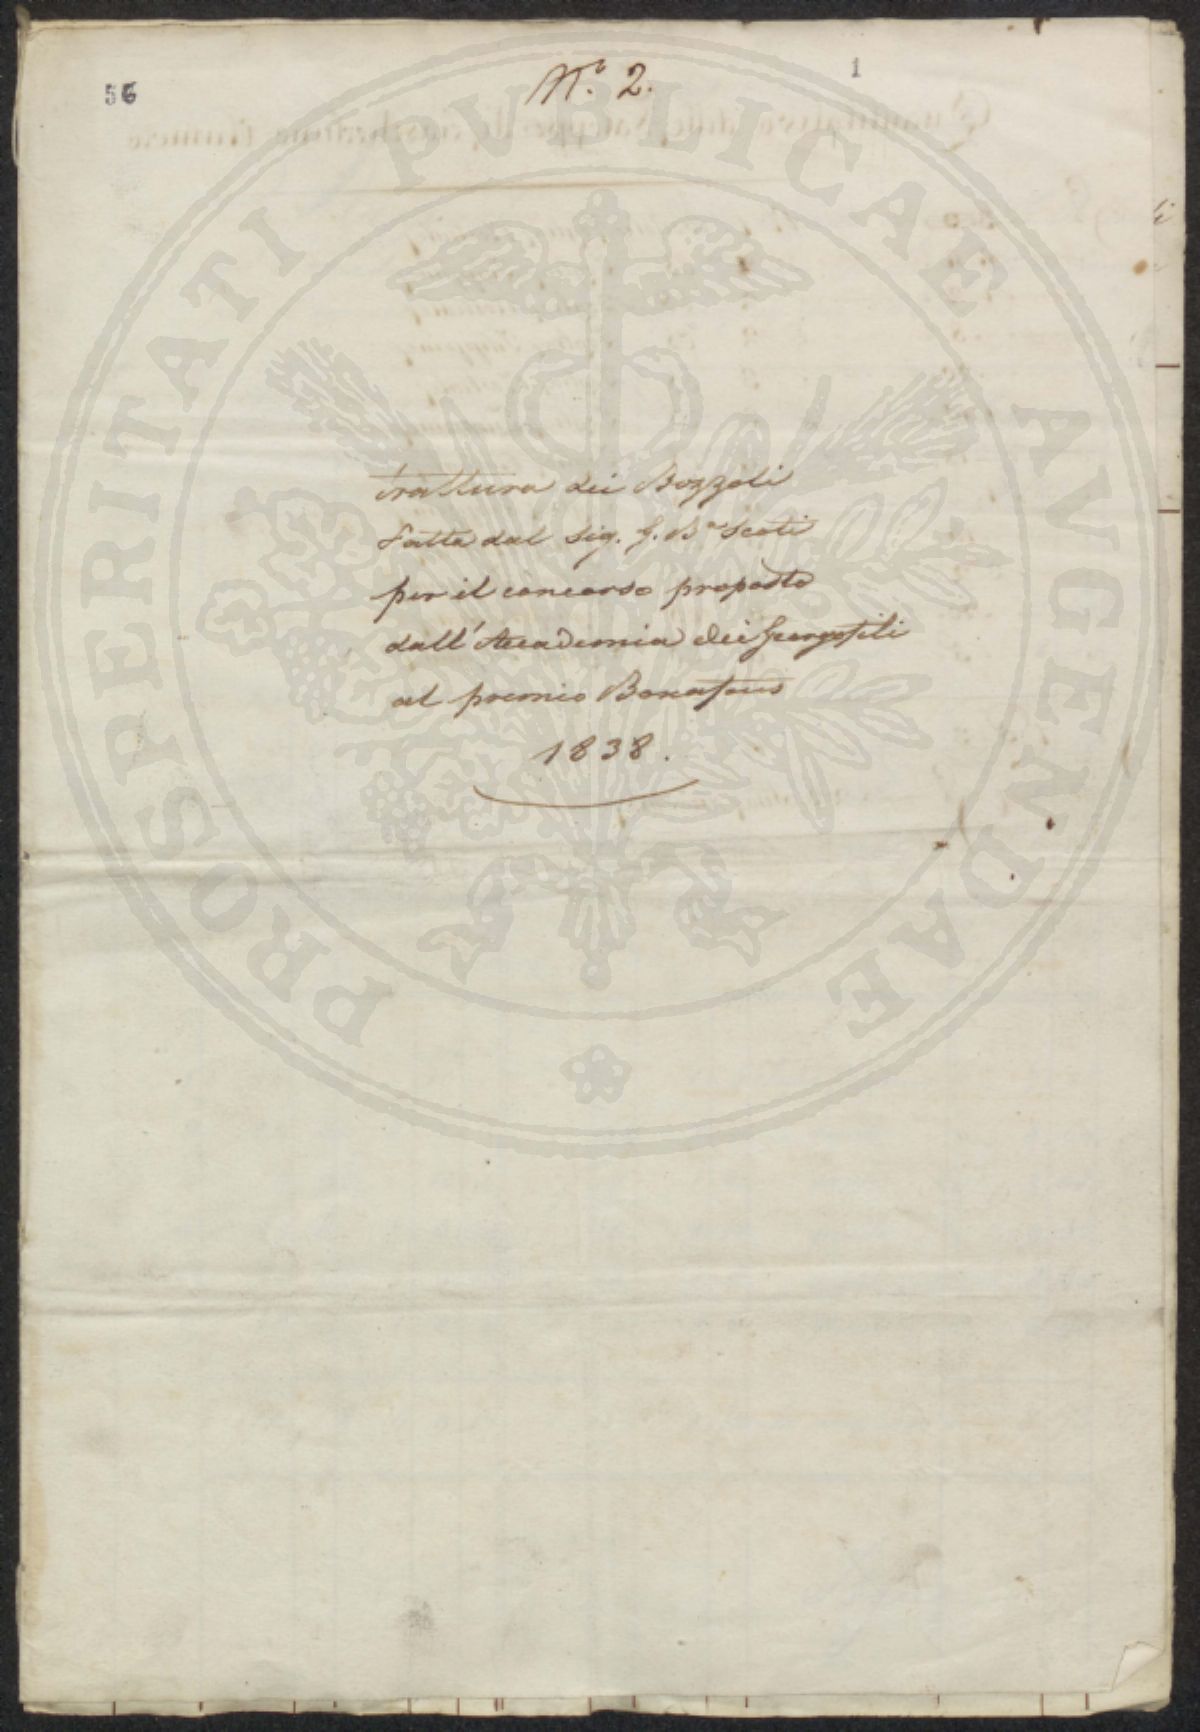 56
Nº. 2.
1
PROSPERITATI PVBLICAE AVGENDAE
Trattura dei Bozzoli
Fatta dal Sig. G. Bª Scoti
per il concorso proposto
dall'Accademia dei Georgofili
al premio Bonafous
1838.